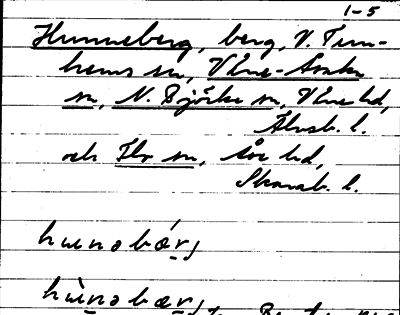 1-5
Hunneberg, berg, V. Tun-
hems sn, Väne-Åsaka
sn, N. Björke sn, Väne hd,
Älvsb. l.
och Flo sn, Åse hd,
Skarab. l.
hunəbærj
hùnəbærj